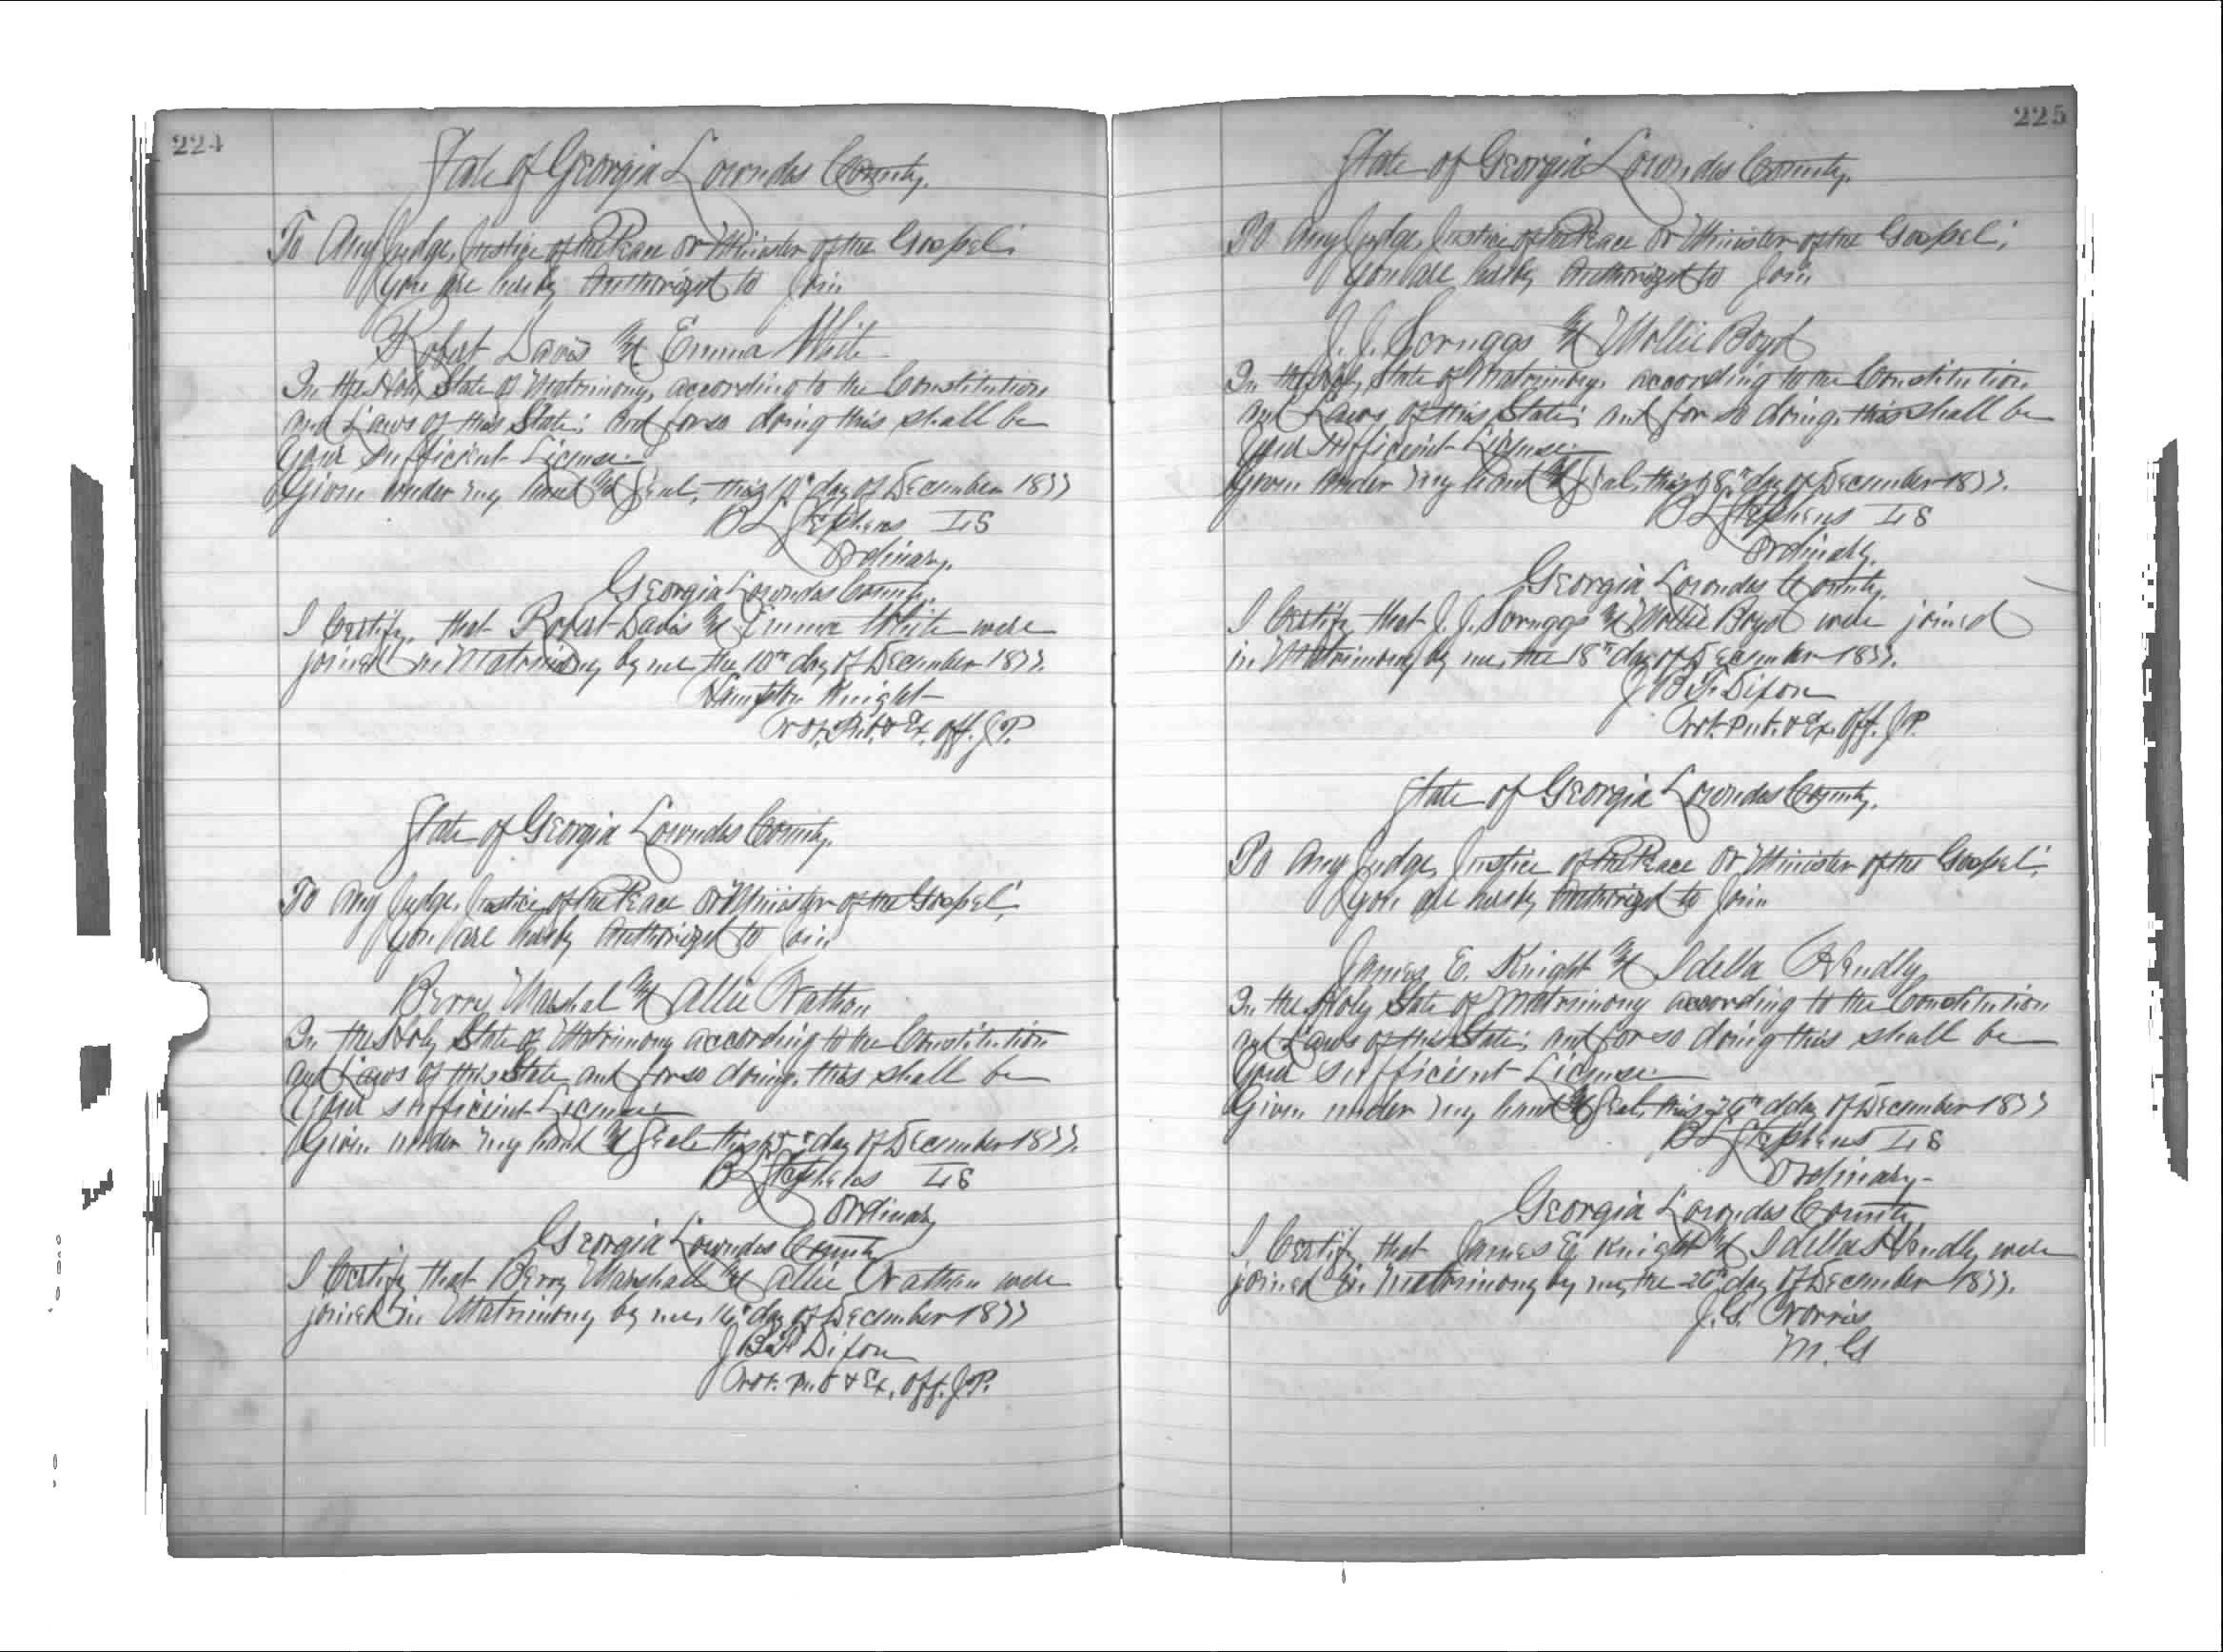 224
State of Georgia Lowndes County.
To Any Judge, Justice of the Peace or Minister of the Gospel;
You are hereby Authorized to Join
Robert Davis & Emma White
In the Holy State of Matrimony, according to the Constitution
and Laws of this State; and for so doing this shall be
Your sufficient License
Given under my hand & Seal, this 10th day of December 1877
B L Stephens LS
Ordinary.
Georgia Lowndes County.
I Certify, that Robert Davis & Emma White were
joined in Matrimony by me the 10th day of December 1877.
Hampton Knight
Not. Pub. & Ex. Off. J.P.
State of Georgia Lowndes County.
To Any Judge, Justice of the Peace or Minister of the Gospel;
You are hereby Authorized to Join
Berry Marshal & Allie
In the Holy State of Matrimony according to the Constitution
and Laws of this State and for so doing, this shall be
Your sufficient License
Given under my hand & Seal this day of December 1877.
B L Stephens LS
Ordinary
Georgia Lowndes County
I Certify that Berry Marshall & Allie were
joined in Matrimony by me, 16th day of December 1877
J B T Dixon
Not. Pub & Ex. Off. J.P.
225
State of Georgia Lowndes County.
To Any Judge, Justice of the Peace or Minister of the Gospel;
You are hereby Authorized to Join
J. J. Scruggs & Mollie Boyd
In the Holy State of Matrimony, according to the Constitution
and Laws of this State; and for so doing, this shall be
Your sufficient License
Given under my hand & Seal, this 18th day of December 1877.
B L Stephens LS
Ordinary.
Georgia Lowndes County.
I Certify that J. J. Scruggs & Mollie Boyd were joined
in Matrimony by me, the 18th day of December 1877.
J B T. Dixon
Not. Pub. & Ex. Off. J P.
State of Georgia Lowndes County.
To Any Judge, Justice of the Peace or Minister of the Gospel;
You are hereby Authorized to Join
James E. Knight & Idella Hendly
In the Holy State of Matrimony according to the Constitution
and Laws of this State; and for so doing this shall be
Your sufficient License
Given under my hand & Seal, this day of December 1877
B L Stephens LS
Ordinary
Georgia Lowndes County
I Certify that James E. Knight & Idella Hendly were
joined in Matrimony by me, the 26th day of December 1877.
J. G. Norris
M. G